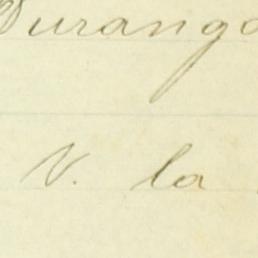 Durango
V. la